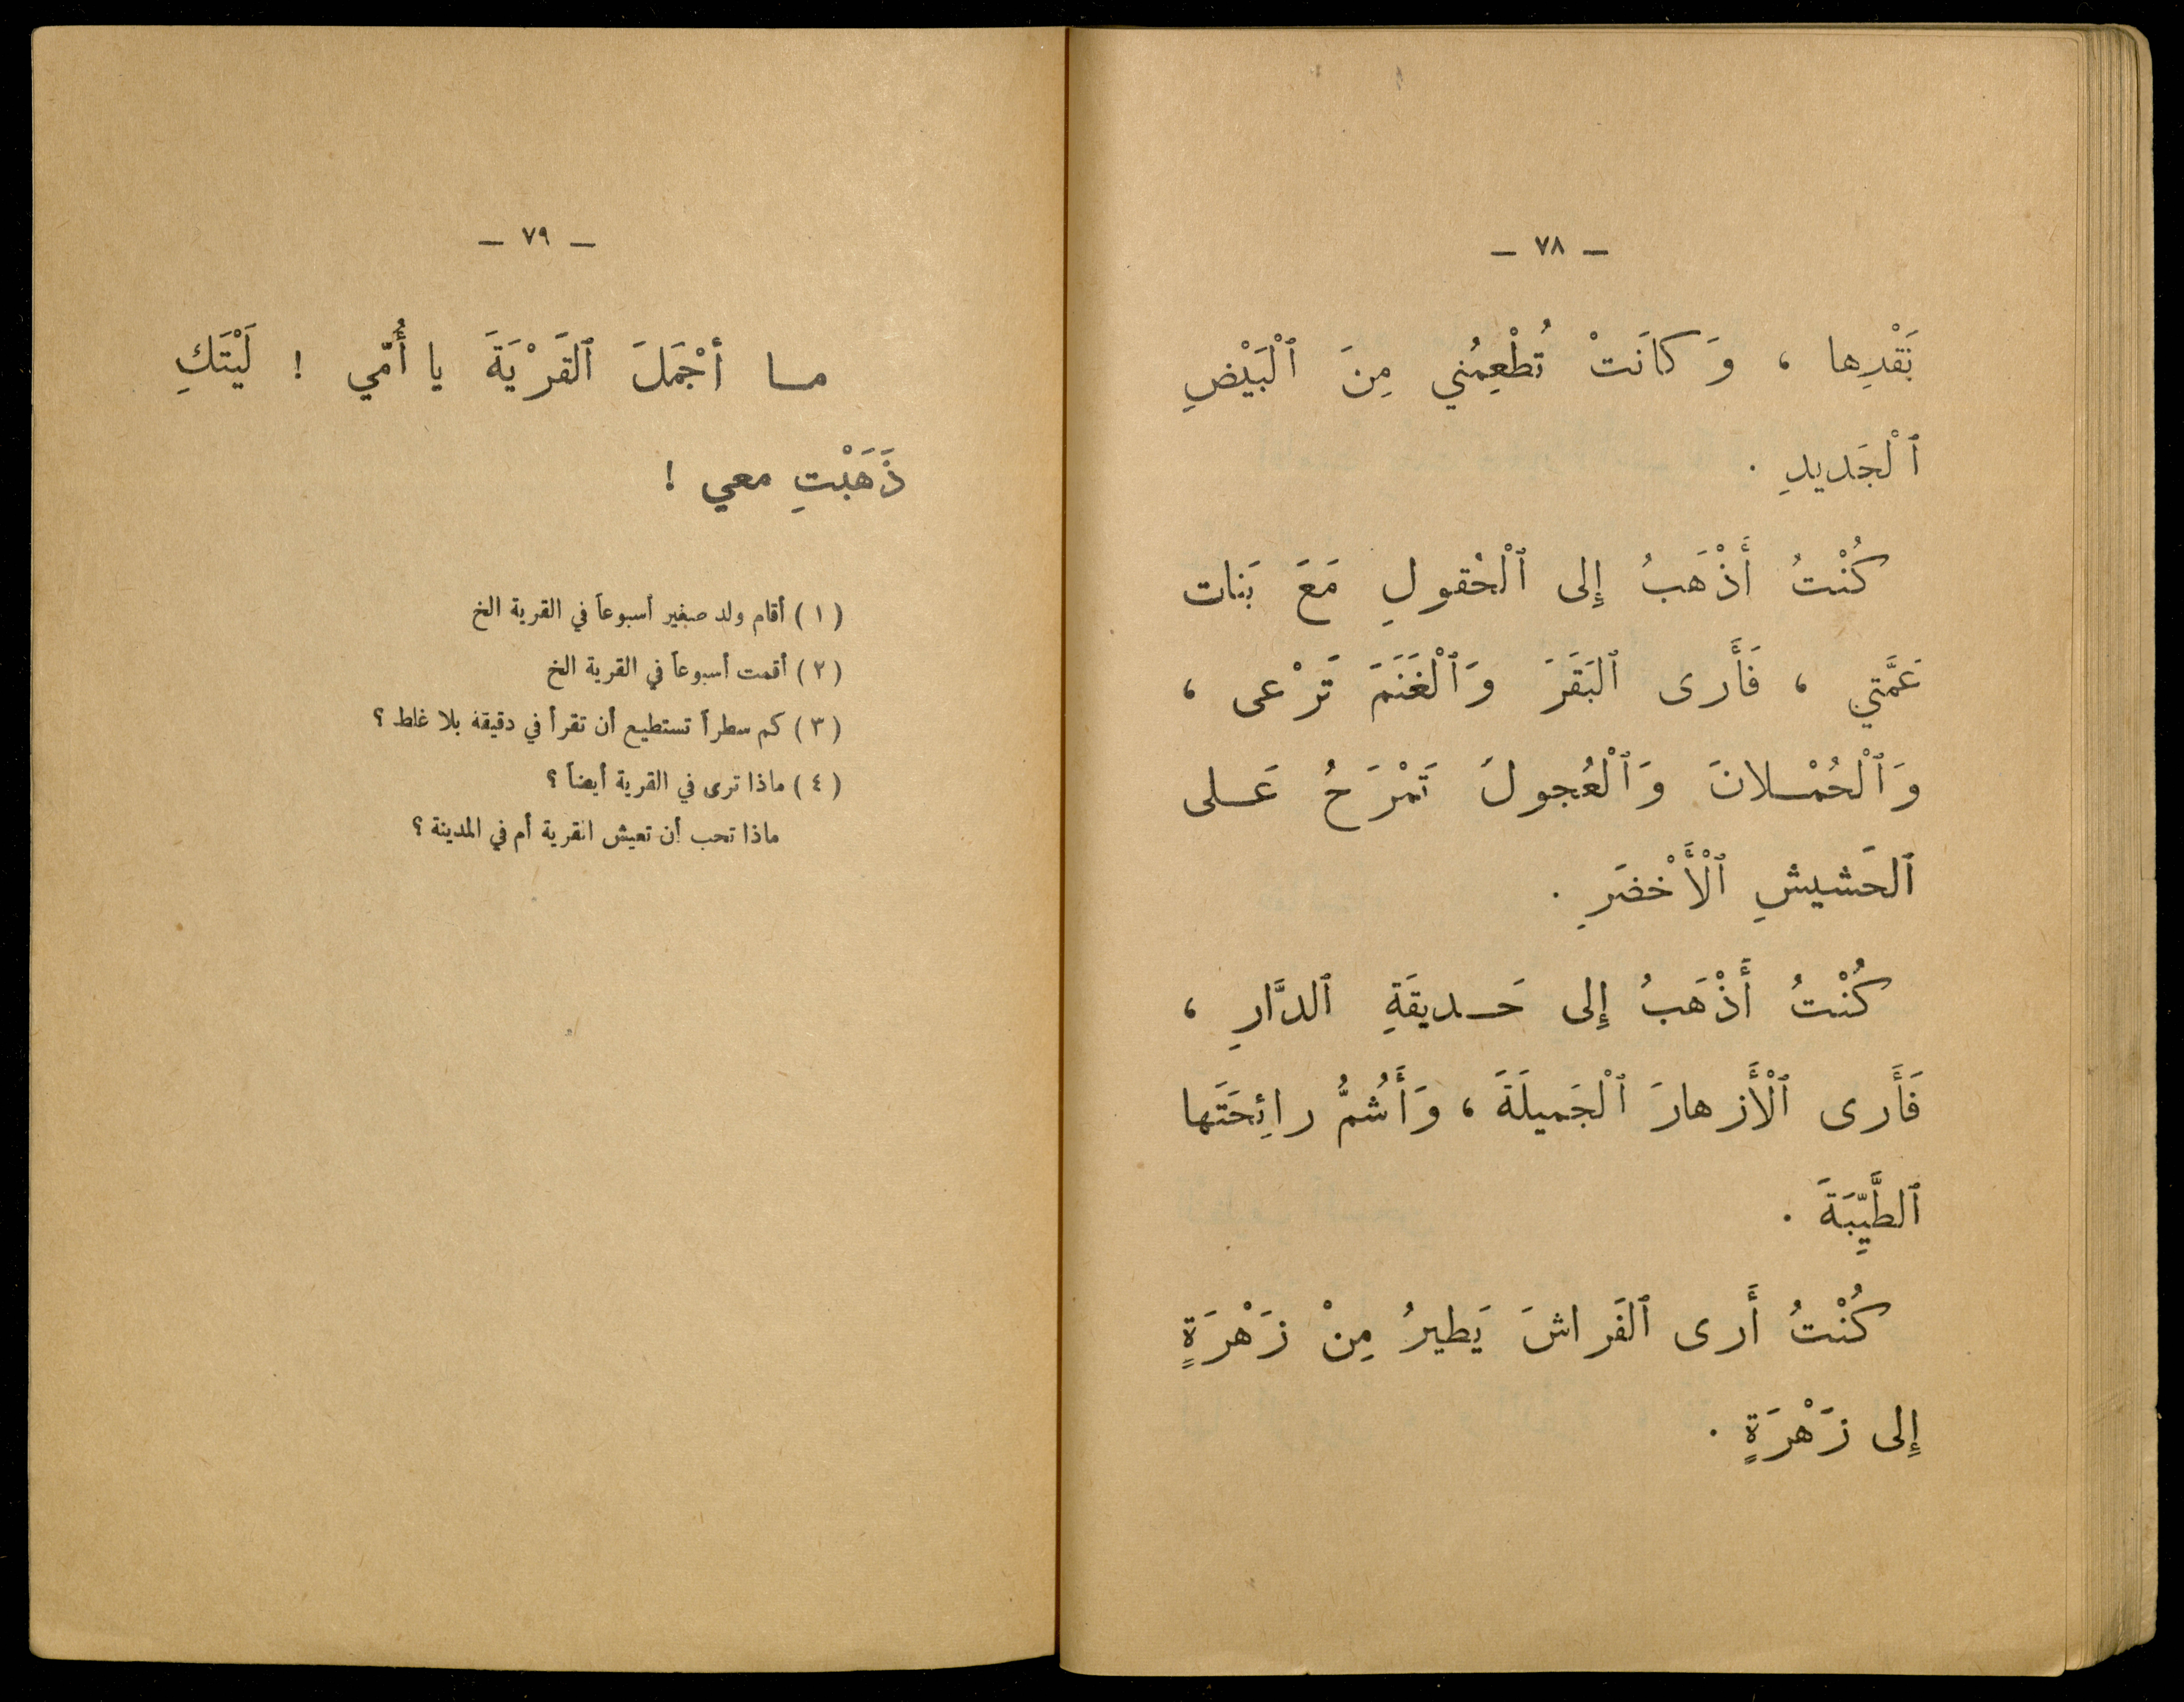 — ٧٨ —
بَقْدِها ، وَكانَتْ تُطْعِمُني مِنَ ٱلْبَيْضِ
ٱلْجَديدِ .
كُنْتُ أَذْهَبُ إِلى ٱلْحُقولِ مَعَ بَنات
عَمَّتي ، فَأَرى ٱلبَقَرَ وَٱلْغَنَمَ تَرْعى ،
وَٱلْحُمْلانَ وَٱلْعُجولَ تَمْرَحُ عَلى
ٱلحَشيشِ ٱلْأَخْضَرِ .
كُنْتُ أَذْهَبُ إِلى حَديقَةِ ٱلدَّارِ ،
فَأَرى ٱلْأَزهارَ ٱلْجَميلَةَ ، وَأَشُمُّ رائِحَتَها
ٱلطَّيِّبَةَ .
كُنْتُ أَرى ٱلفَراشَ يَطيرُ مِنْ زَهْرَةٍ
إِلى زَهْرَةٍ .
— ٧٩ —
ما أجْمَلَ ٱلقَرْيَةَ يا أُمّي ! لَيْتَكِ
ذَهَبْتِ معي !
( ١ ) أقام ولد صغير أسبوعاً في القرية الخ
( ٢ ) أقمت أسبوعاً في القرية الخ
( ٣ ) كم سطراً تستطيع أن تقرأ في دقيقة بلا غلط ؟
( ٤ ) ماذا ترى في القرية أيضاً ؟
ماذا تحب أن تعيش القرية أم في المدينة ؟